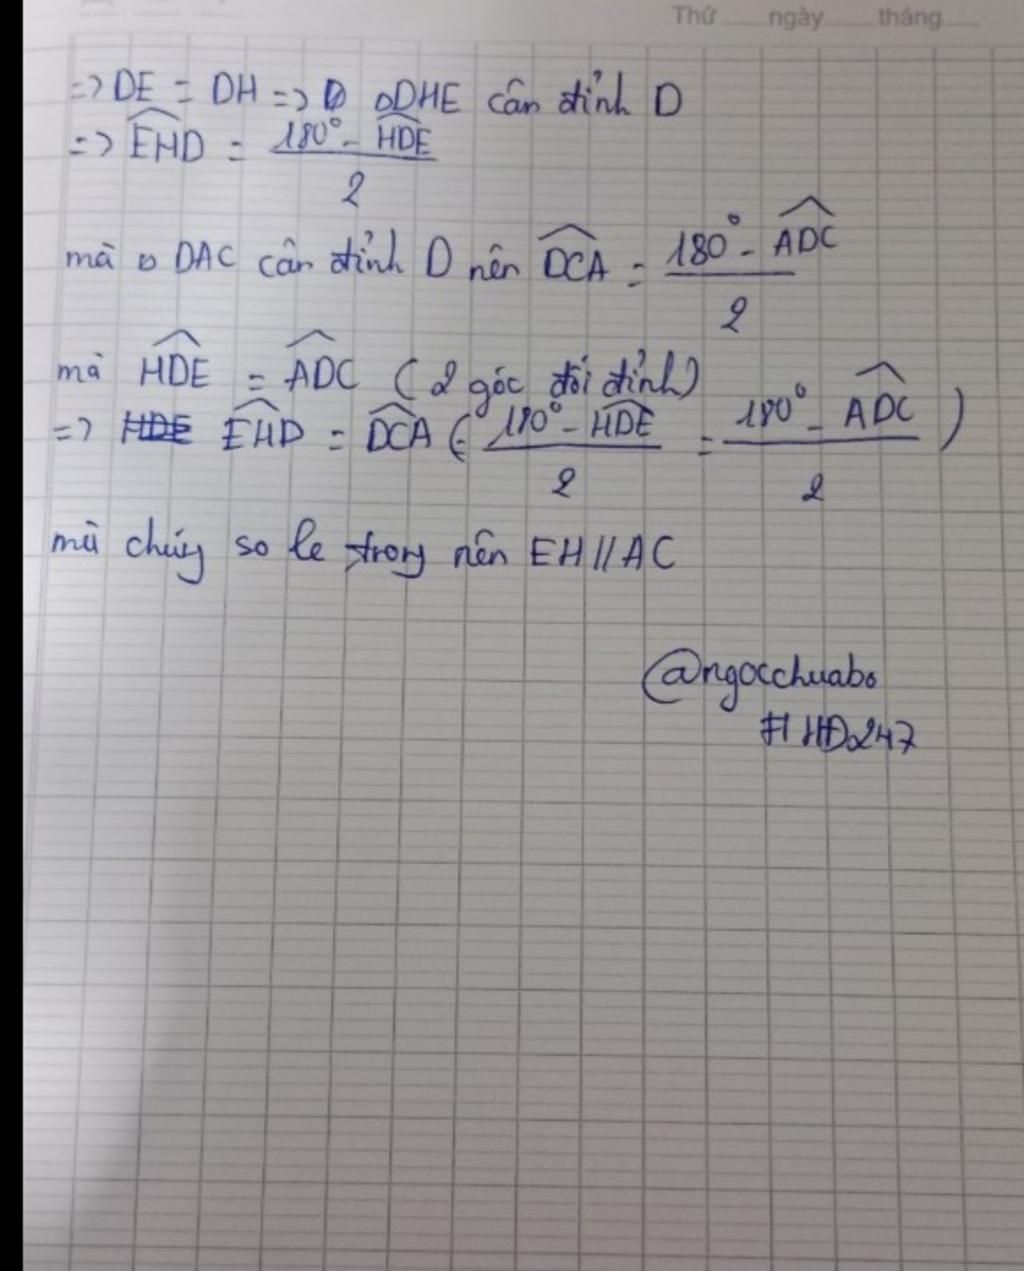 Thứ ngày tháng
=> DE = DH => ΔDHE cân đỉnh D
=> \widehat{EHD} = \frac{180° - \widehat{HDE}}{2}
mà Δ DAC cân đỉnh D nên \widehat{DCA} = \frac{180° - \widehat{ADC}}{2}
mà \widehat{HDE} = \widehat{ADC} (2 góc đối đỉnh)
=> \widehat{EHD} = \widehat{DCA} (= \frac{180° - \widehat{HDE}}{2} = \frac{180° - \widehat{ADC}}{2})
mà chúng so le trong nên EH//AC
@ngocchuabo
#HĐ247